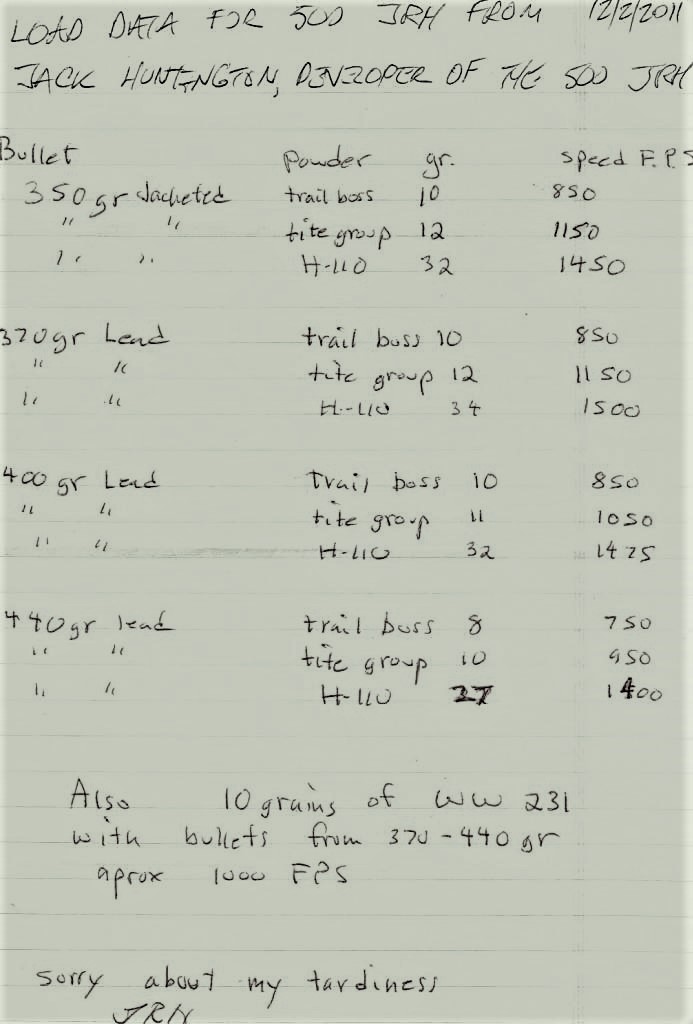 LOAD DATA FOR 500 JRH FROM 12/2/2011
JACK HUNTINGTON, DEVELOPER OF THE 500 JRH
Bullet Powder gr. Speed F.P.S
350 gr Jacketed trail boss 10 850
" " tite group 12 1150
" " H-110 32 1450
370gr Lead trail boss 10 850
" " tite group 12 1150
" " H-110 34 1500
400 gr Lead trail boss 10 850
" " tite group 11 1050
" " H-110 32 1425
440gr lead trail boss 8 750
" " tite group 10 950
" " H-110 1400
Also 10 grains of WW 231
with bullets from 370-440 gr
aprox 1000 FPS
sorry about my tardiness
JRH